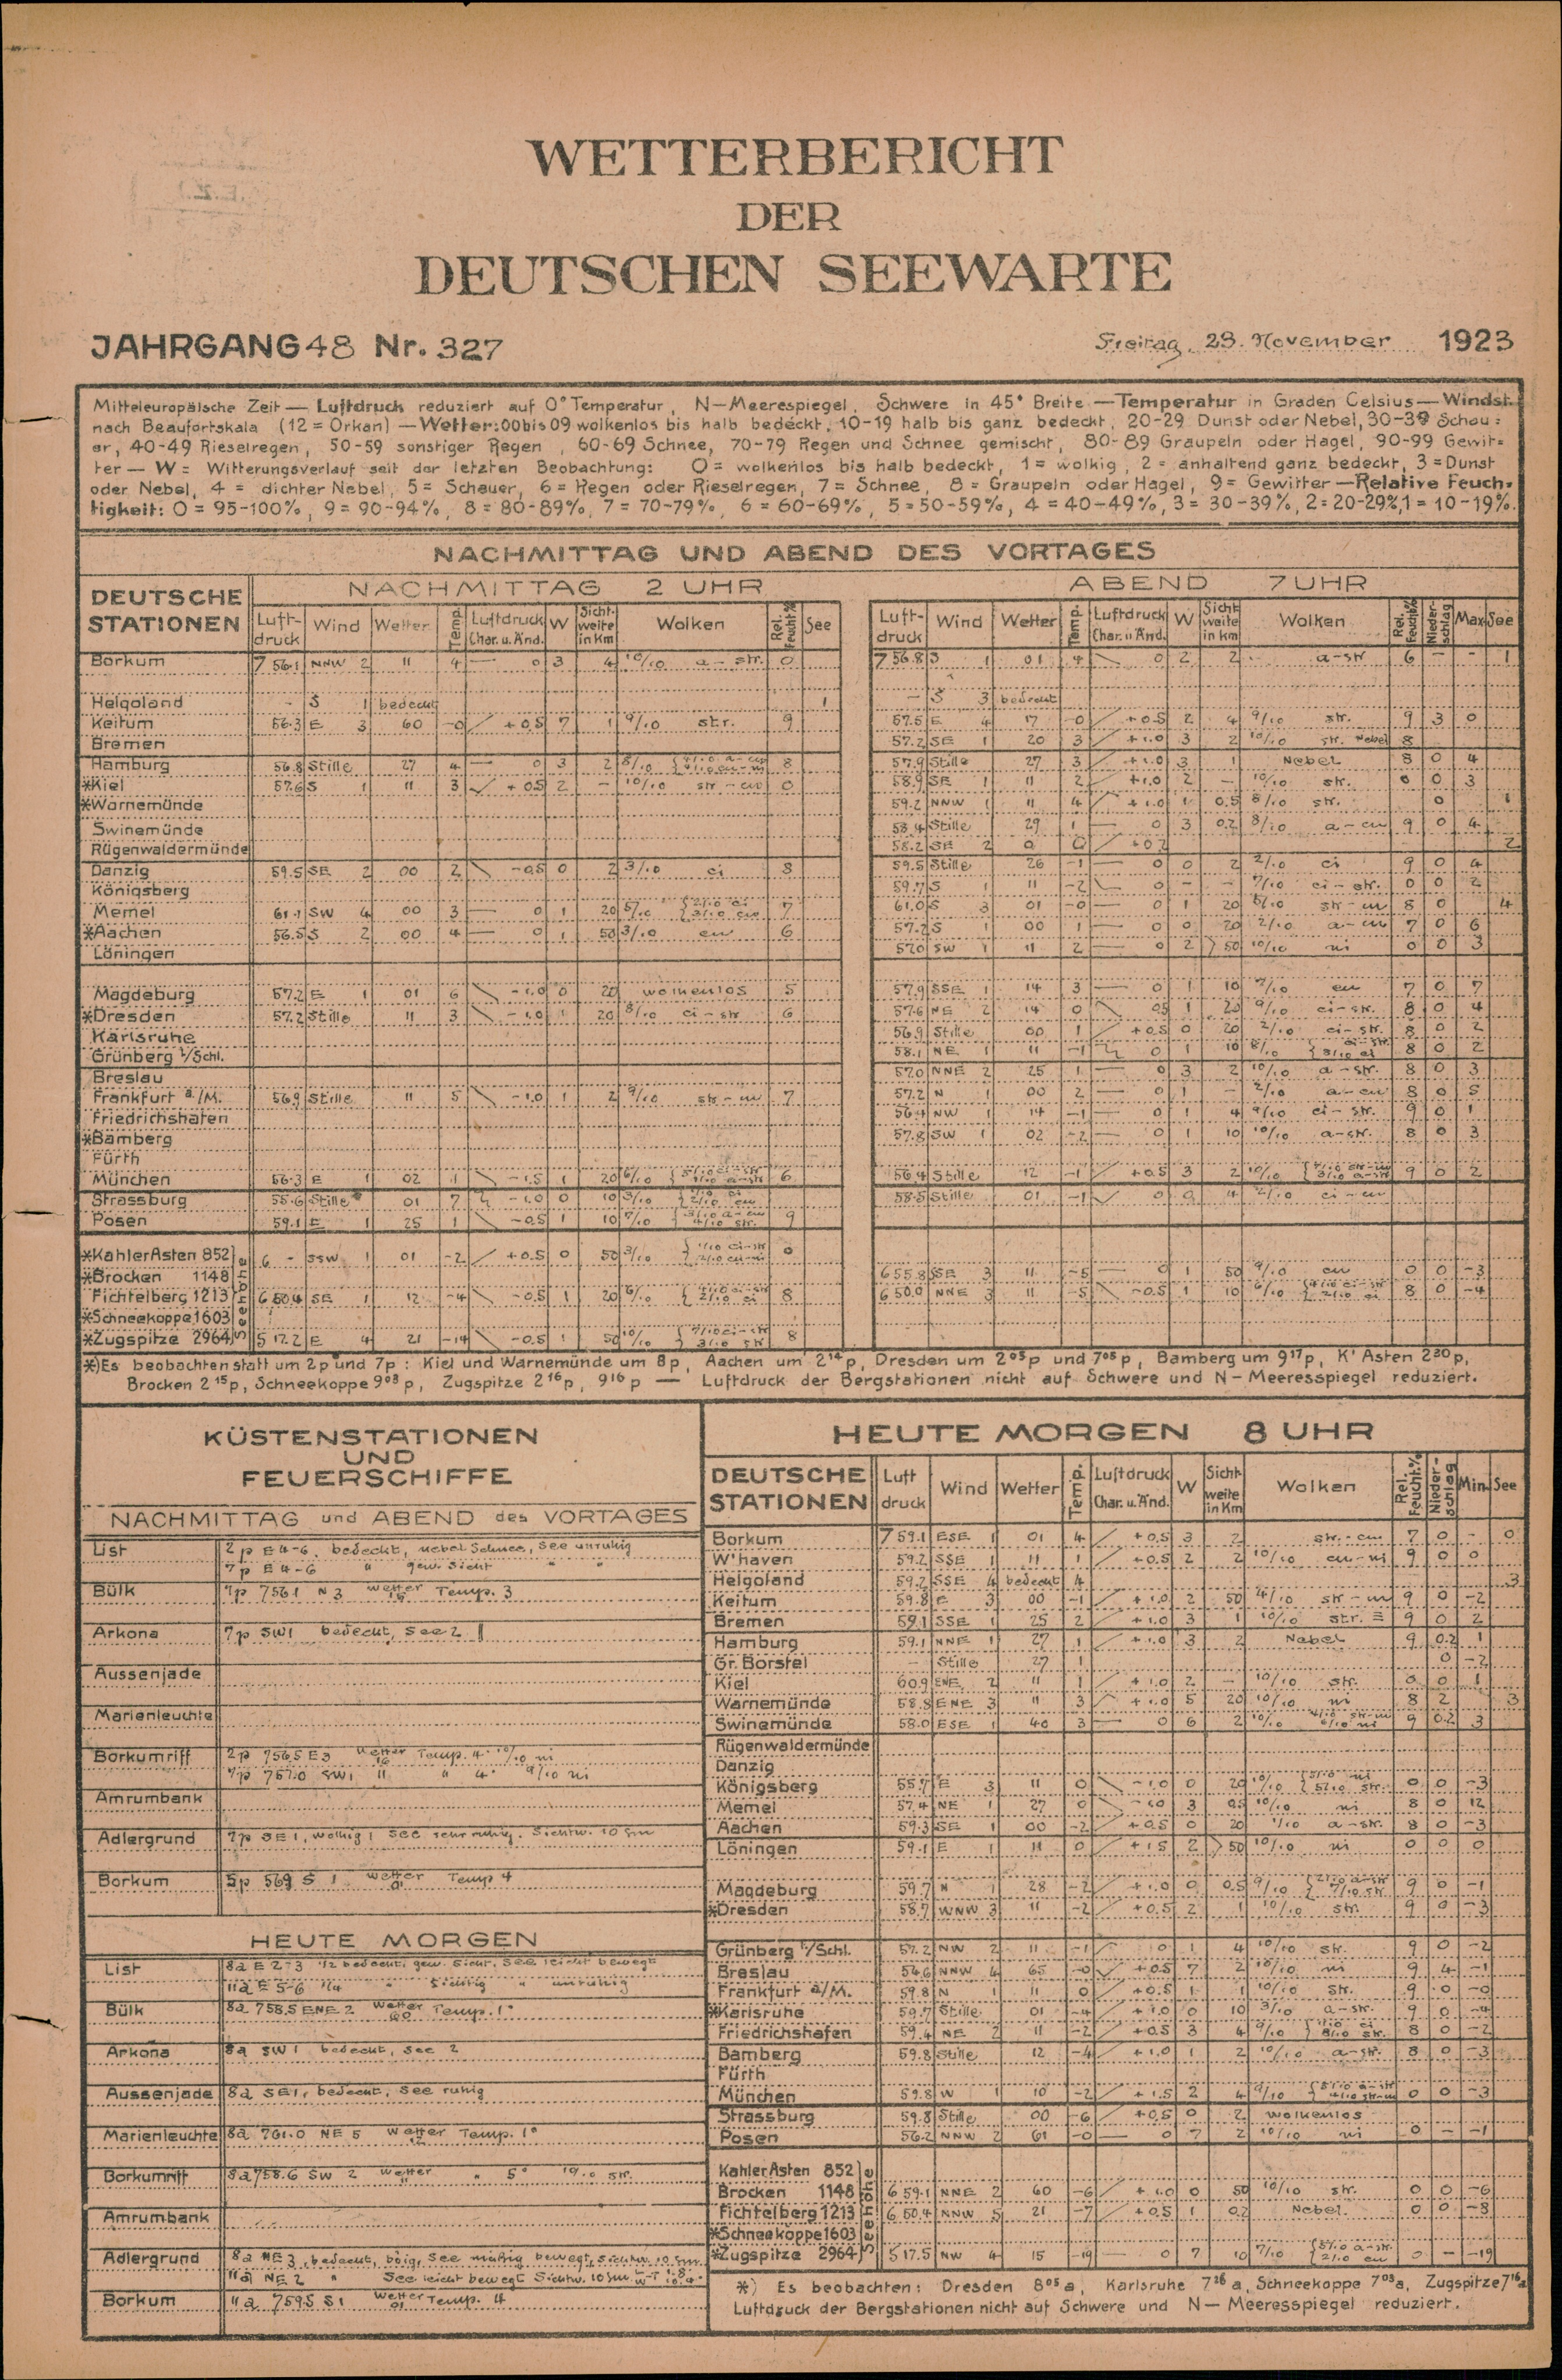 WETTERBERICHT
DER
DEUTSCHEN SEEWARTE
JAHRGANG 48 Nr. 327
Freitag, 23. November 1923
Mitteleuropäische Zeit — Luftdruck reduziert auf 0° Temperatur, N—Meerespiegel, Schwere in 45° Breite — Temperatur in Graden Celsius — Windst.
nach Beaufortskala (12 = Orkan) — Wetter: 00 bis 09 wolkenlos bis halb bedeckt, 10-19 halb bis ganz bedeckt, 20-29 Dunst oder Nebel, 30-39 Schau=
er, 40-49 Rieselregen, 50-59 sonstiger Regen, 60-69 Schnee, 70-79 Regen und Schnee gemischt, 80-89 Graupeln oder Hagel, 90-99 Gewit=
ter — W = Witterungsverlauf seit der letzten Beobachtung: 0 = wolkenlos bis halb bedeckt, 1 = wolkig, 2 = anhaltend ganz bedeckt, 3 = Dunst
oder Nebel, 4 = dichter Nebel, 5 = Schauer, 6 = Regen oder Rieselregen, 7 = Schnee, 8 = Graupeln oder Hagel, 9 = Gewitter — Relative Feuch-
tigkeit: 0 = 95-100%, 9 = 90-94%, 8 = 80-89%, 7 = 70-79%, 6 = 60-69%, 5 = 50-59%, 4 = 40-49%, 3 = 30-39%, 2 = 20-29%, 1 = 10-19%.
NACHMITTAG UND ABEND DES VORTAGES
DEUTSCHE STATIONEN
NACHMITTAG 2 UHR
Luft-druck Wind Wetter Temp. Luftdruck Char. u. Änd. W Sicht-weite in Km Wolken Rel. Feucht.% See
ABEND 7 UHR
Luft-druck Wind Wetter Temp. Luftdruck Char. u. Änd. W Sicht weite in km Wolken Rel. Feucht.% Nieder-schlag Max. See
Borkum 7 56.1 NNW 2 11 4 — 0 3 4 10/10 a-str. 0 7 56.8 S 1 01 4 0 2 2 a-str 6 - - 1
Helgoland - S 1 bedeckt 1 - S 3 bedeckt
Keitum 56.3 E 3 60 -0 +0.5 7 1 9/10 str. 9 57.5 E 4 17 -0 +0.5 2 4 9/10 str. 9 3 0
Bremen 57.2 SE 1 20 3 +1.0 3 2 10/10 str. Nebel 8
Hamburg 56.8 Stille 27 4 — 0 3 2 8/10 8 57.9 Stille 27 3 +1.0 3 1 Nebel 8 0 4
*Kiel 57.6 S 1 11 3 +0.5 2 - 10/10 str-cu 0 58.9 SE 1 11 2 +1.0 2 - 10/10 str. 0 0 3
*Warnemünde 59.2 NNW 1 11 4 +1.0 1 0.5 8/10 str. 0 1
Swinemünde 58.4 Stille 29 1 — 0 3 0.2 8/10 a-cu 9 0 4
Rügenwaldermünde 58.2 SE 2 0 0 +0.2 2
Danzig 59.5 SE 2 00 2 -0.5 0 2 3/10 ci 8 59.5 Stille 26 -1 — 0 0 2 2/10 ci 9 0 4
Königsberg 59.7 S 1 11 -2 0 - - 7/10 ci-str. 0 0 2
Memel 61.1 SW 4 00 3 — 0 1 20 5/10 7 61.0 S 3 01 -0 — 0 1 20 str-cu 8 0 4
*Aachen 56.5 S 2 00 4 — 0 1 50 3/10 cu 6 57.2 S 1 00 1 — 0 0 20 2/10 a-cu 7 0 6
Löningen 57.0 SW 1 11 2 — 0 2 >50 10/10 ni 0 0 3
Magdeburg 57.2 E 1 01 6 -1.0 0 20 wolkenlos 5 57.9 SSE 1 14 3 — 0 1 10 7/10 cu 7 0 7
*Dresden 57.2 Stille 11 3 -1.0 1 20 8/10 ci-str 6 57.6 NE 2 14 0 0.5 1 20 9/10 ci-str. 8 0 4
Karlsruhe 56.9 Stille 00 1 +0.5 0 20 2/10 ci-str. 8 0 2
Grünberg i/Schl. 58.1 NE 1 11 -1 0 1 10 8/10 8 0 2
Breslau 57.0 NNE 2 25 1 — 0 3 2 10/10 a-str. 8 0 3
Frankfurt a./M. 56.9 Stille 11 5 -1.0 1 2 9/10 str-cu 7 57.2 N 1 00 2 — 0 1 - 2/10 a-cu 8 0 5
Friedrichshafen 56.4 NW 1 14 -1 — 0 1 4 9/10 ci-str. 9 0 1
*Bamberg 57.8 SW 1 02 -2 — 0 1 10 10/10 a-str. 8 0 3
Fürth
München 56.3 E 1 02 1 -1.5 1 20 6/10 6 56.4 Stille 12 -1 +0.5 3 2 10/10 9 0 2
Strassburg 55.6 Stille 01 7 -1.0 0 10 3/10 58.5 Stille 01 -1 0 0 4 2/10 ci-cu
Posen 59.1 E 1 25 1 -0.5 1 10 7/10 9
Seehöhe
*Kahler Asten 852 6 - SSW 1 01 -2 +0.5 0 50 3/10 0
*Brocken 1148 655.8 SSE 3 11 -5 0 1 50 9/10 cu 0 0 -3
Fichtelberg 1213 650.4 SE 1 12 -4 -0.5 1 20 6/10 8 650.0 NNE 3 11 -5 -0.5 1 10 6/10 8 0 -4
*Schneekoppe 1603
*Zugspitze 2964 517.2 E 4 21 -14 -0.5 1 50 10/10 7/10 ci-str 3/10 str 8
*) Es beobachten statt um 2p und 7p: Kiel und Warnemünde um 8p, Aachen um 2¹⁴p, Dresden um 2⁰⁵p und 7⁰⁵p, Bamberg um 9¹⁷p, K' Asten 2²⁰p,
Brocken 2¹⁵p, Schneekoppe 9⁰³p, Zugspitze 2¹⁶p, 9¹⁶p — Luftdruck der Bergstationen nicht auf Schwere und N—Meeresspiegel reduziert.
KÜSTENSTATIONEN
UND
FEUERSCHIFFE
NACHMITTAG und ABEND des VORTAGES
List 2p E 4-6, bedeckt, nebel Schnee, See unruhig
7p E 4-6 " gew. Sicht " "
Bülk 7p 756.1 N 3 Wetter 16 Temp. 3
Arkona 7p SW 1 bedeckt, See 2
Aussenjade
Marienleuchte
Borkumriff 2p 756.5 E 3 Wetter 16 Temp. 4° 10/10 ni
7p 757.0 SW 1 11 " 4° 9/10 ni
Amrumbank
Adlergrund 7p SE 1, wolkig, See sehr ruhig. Sichtw. 10 sm
Borkum 5p 569 S 1 Wetter 01 Temp 4
HEUTE MORGEN
List 8a E 2-3 1/2 bedeckt, gew. Sicht, See leicht bewegt
11a E 5-6 1/4 " Sichtig " unruhig
Bülk 8a 758.5 ENE 2 Wetter 60 Temp. 1°
Arkona 8a SW 1 bedeckt, See 2
Aussenjade 8a SE 1, bedeckt, See ruhig
Marienleuchte 8a 761.0 NE 5 Wetter 12 Temp. 1°
Borkumriff 8a 758.6 SW 2 Wetter 11 " 5° 10/10 str.
Amrumbank
Adlergrund 8a NE 3, bedeckt, böig, See mäßig bewegt, Sichtw. 10 sm.
11a NE 2 " See leicht bewegt Sichtw. 10 sm
Borkum 11a 759.5 S 1 Wetter 01 Temp. 4
HEUTE MORGEN 8 UHR
DEUTSCHE STATIONEN Luft druck Wind Wetter Temp. Luftdruck Char. u. Änd. W Sicht weite in Km Wolken Rel. Feucht.% Nieder-schlag Min. See
Borkum 7 59.1 ESE 1 01 4 +0.5 3 2 str.-cu 7 0 - 0
W'haven 59.2 SSE 1 11 1 +0.5 2 2 10/10 cu-ni 9 0 0
Helgoland 59.2 SSE 4 bedeckt 4 3
Keitum 59.8 E 3 00 -1 +1.0 2 50 4/10 str-cu 9 0 -2
Bremen 59.1 SSE 1 25 2 +1.0 3 1 10/10 str. ≡ 9 0 2
Hamburg 59.1 NNE 1 27 1 +1.0 3 2 Nebel 9 0.2 1
Gr. Borstel - Stille 27 1 0 -2
Kiel 60.9 ENE 2 11 1 +1.0 2 - 10/10 str. 0 0 1
Warnemünde 58.8 ENE 3 11 3 +1.0 5 20 10/10 ni 8 2 3
Swinemünde 58.0 ESE 1 40 3 — 0 6 2 10/10 4/10 str-cu 6/10 ni 9 0.2 3
Rügenwaldermünde
Danzig
Königsberg 55.7 E 3 11 0 -1.0 0 20 10/10 5/10 ni 5/10 str. 0 0 -3
Memel 57.4 NE 1 27 0 3 0.5 10/10 ni 8 0 12
Aachen 59.3 SE 1 00 -2 +0.5 0 20 1/10 a-str. 8 0 -3
Löningen 59.1 E 1 11 0 +1.5 2 >50 10/10 ni 0 0 0
Magdeburg 59.7 N 1 28 -2 +1.0 0 0.5 9/10 2/10 a-str 7/10 str. 9 0 -1
*Dresden 58.7 WNW 3 11 -2 +0.5 2 1 10/10 str. 9 0 -3
Grünberg i/Schl. 57.2 NW 2 11 -1 0 1 4 10/10 str. 9 0 -2
Breslau 54.6 NNW 4 65 -0 +0.5 7 2 10/10 ni 9 4 -1
Frankfurt a/M. 59.8 N 1 11 0 +0.5 1 1 10/10 str. 9 0 -0
*Karlsruhe 59.7 Stille 01 -4 +1.0 0 10 3/10 a-str. 9 0 -4
Friedrichshafen 59.4 NE 2 11 -2 +0.5 3 4 9/10 1/10 ci 8/10 str. 8 0 -2
Bamberg 59.8 Stille 12 -4 +1.0 1 2 10/10 a-str. 8 0 -3
Fürth
München 59.8 W 1 10 -2 +1.5 2 4 9/10 5/10 a-str 4/10 str-cu 0 0 -3
Strassburg 59.8 Stille 00 -6 +0.5 0 2 wolkenlos
Posen 56.2 NNW 2 61 -0 — 0 7 2 10/10 ni 0 - -1
Seehöhe
Kahler Asten 852
Brocken 1148 659.1 NNE 2 60 -6 +1.0 0 50 10/10 str. 0 0 -6
Fichtelberg 1213 650.4 NNW 5 21 -7 +0.5 1 0.2 Nebel. 0 0 -8
*Schneekoppe 1603
*Zugspitze 2964 517.5 NW 4 15 -19 — 0 7 10 7/10 5/10 a-str. 2/10 cu 0 - -19
*) Es beobachten: Dresden 8⁰⁵a, Karlsruhe 7²⁶a, Schneekoppe 7⁰³a, Zugspitze 7¹⁶a
Luftdruck der Bergstationen nicht auf Schwere und N—Meeresspiegel reduziert.